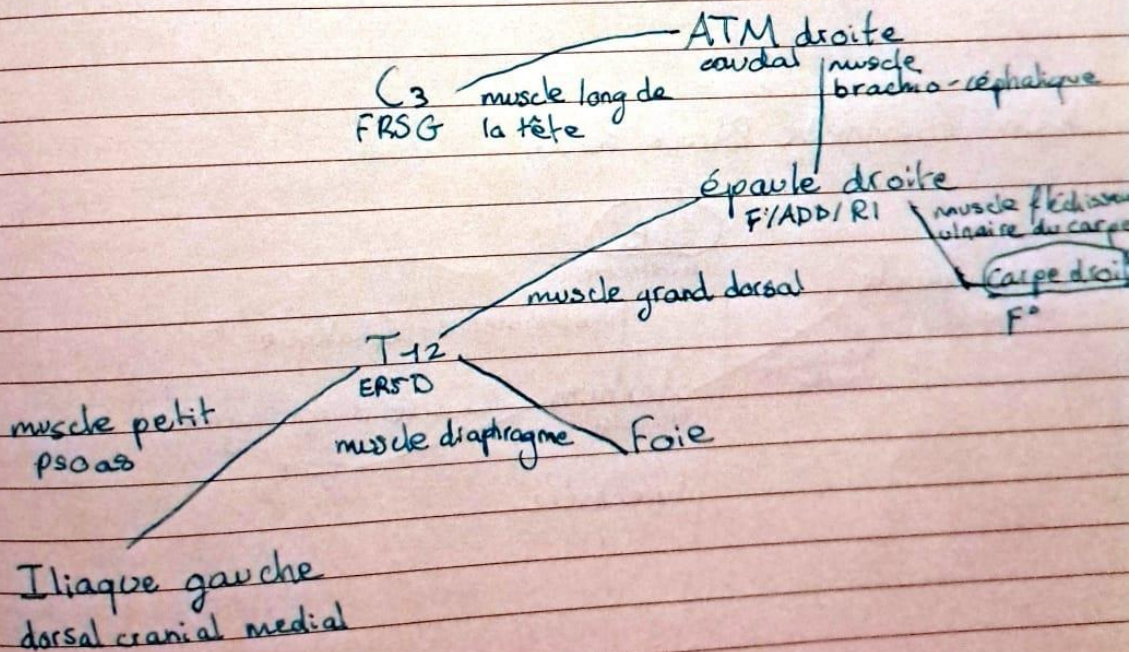 ATM droite
caudal
muscle
brachio-céphalique
C3
FRSG
muscle long de
la tête
épaule droite
F°/ADD/RI
muscle fléchisseur
ulnaire du carpe
Carpe droit
F°
muscle grand dorsal
T12
ERSD
muscle petit
psoas
muscle diaphragme
Foie
Iliaque gauche
dorsal cranial medial